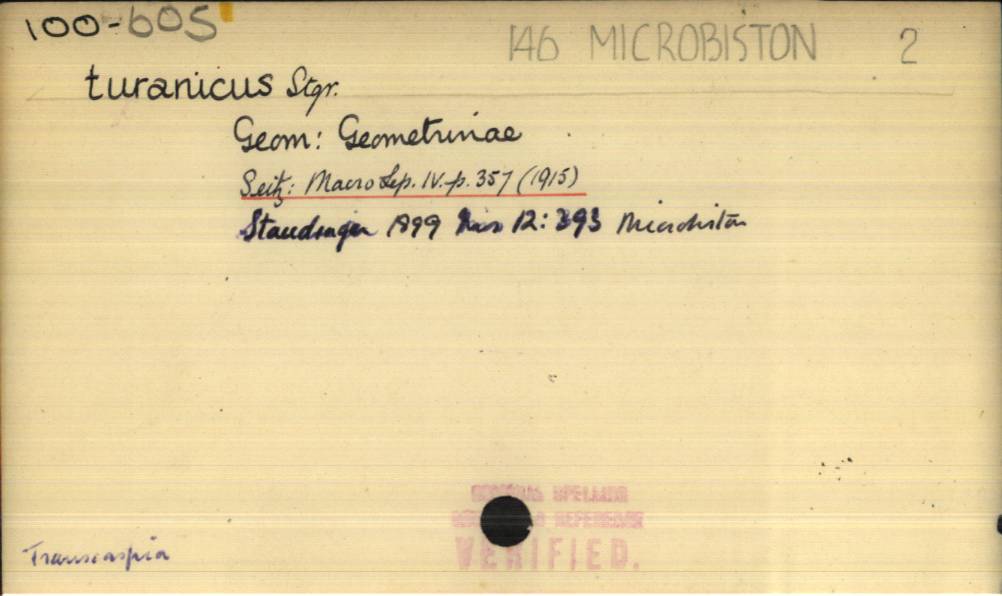 100-605
146 MICROBISTON 2
turanicus Stgr.
Geom: Geometrinae
Seitz: Macro Lep. IV. p. 357 (1915)
Staudinger 1899 Iris 12: 393 Microbiston
ORIGINAL SPELLING
AND REFERENCE
VERIFIED.
Transcaspia